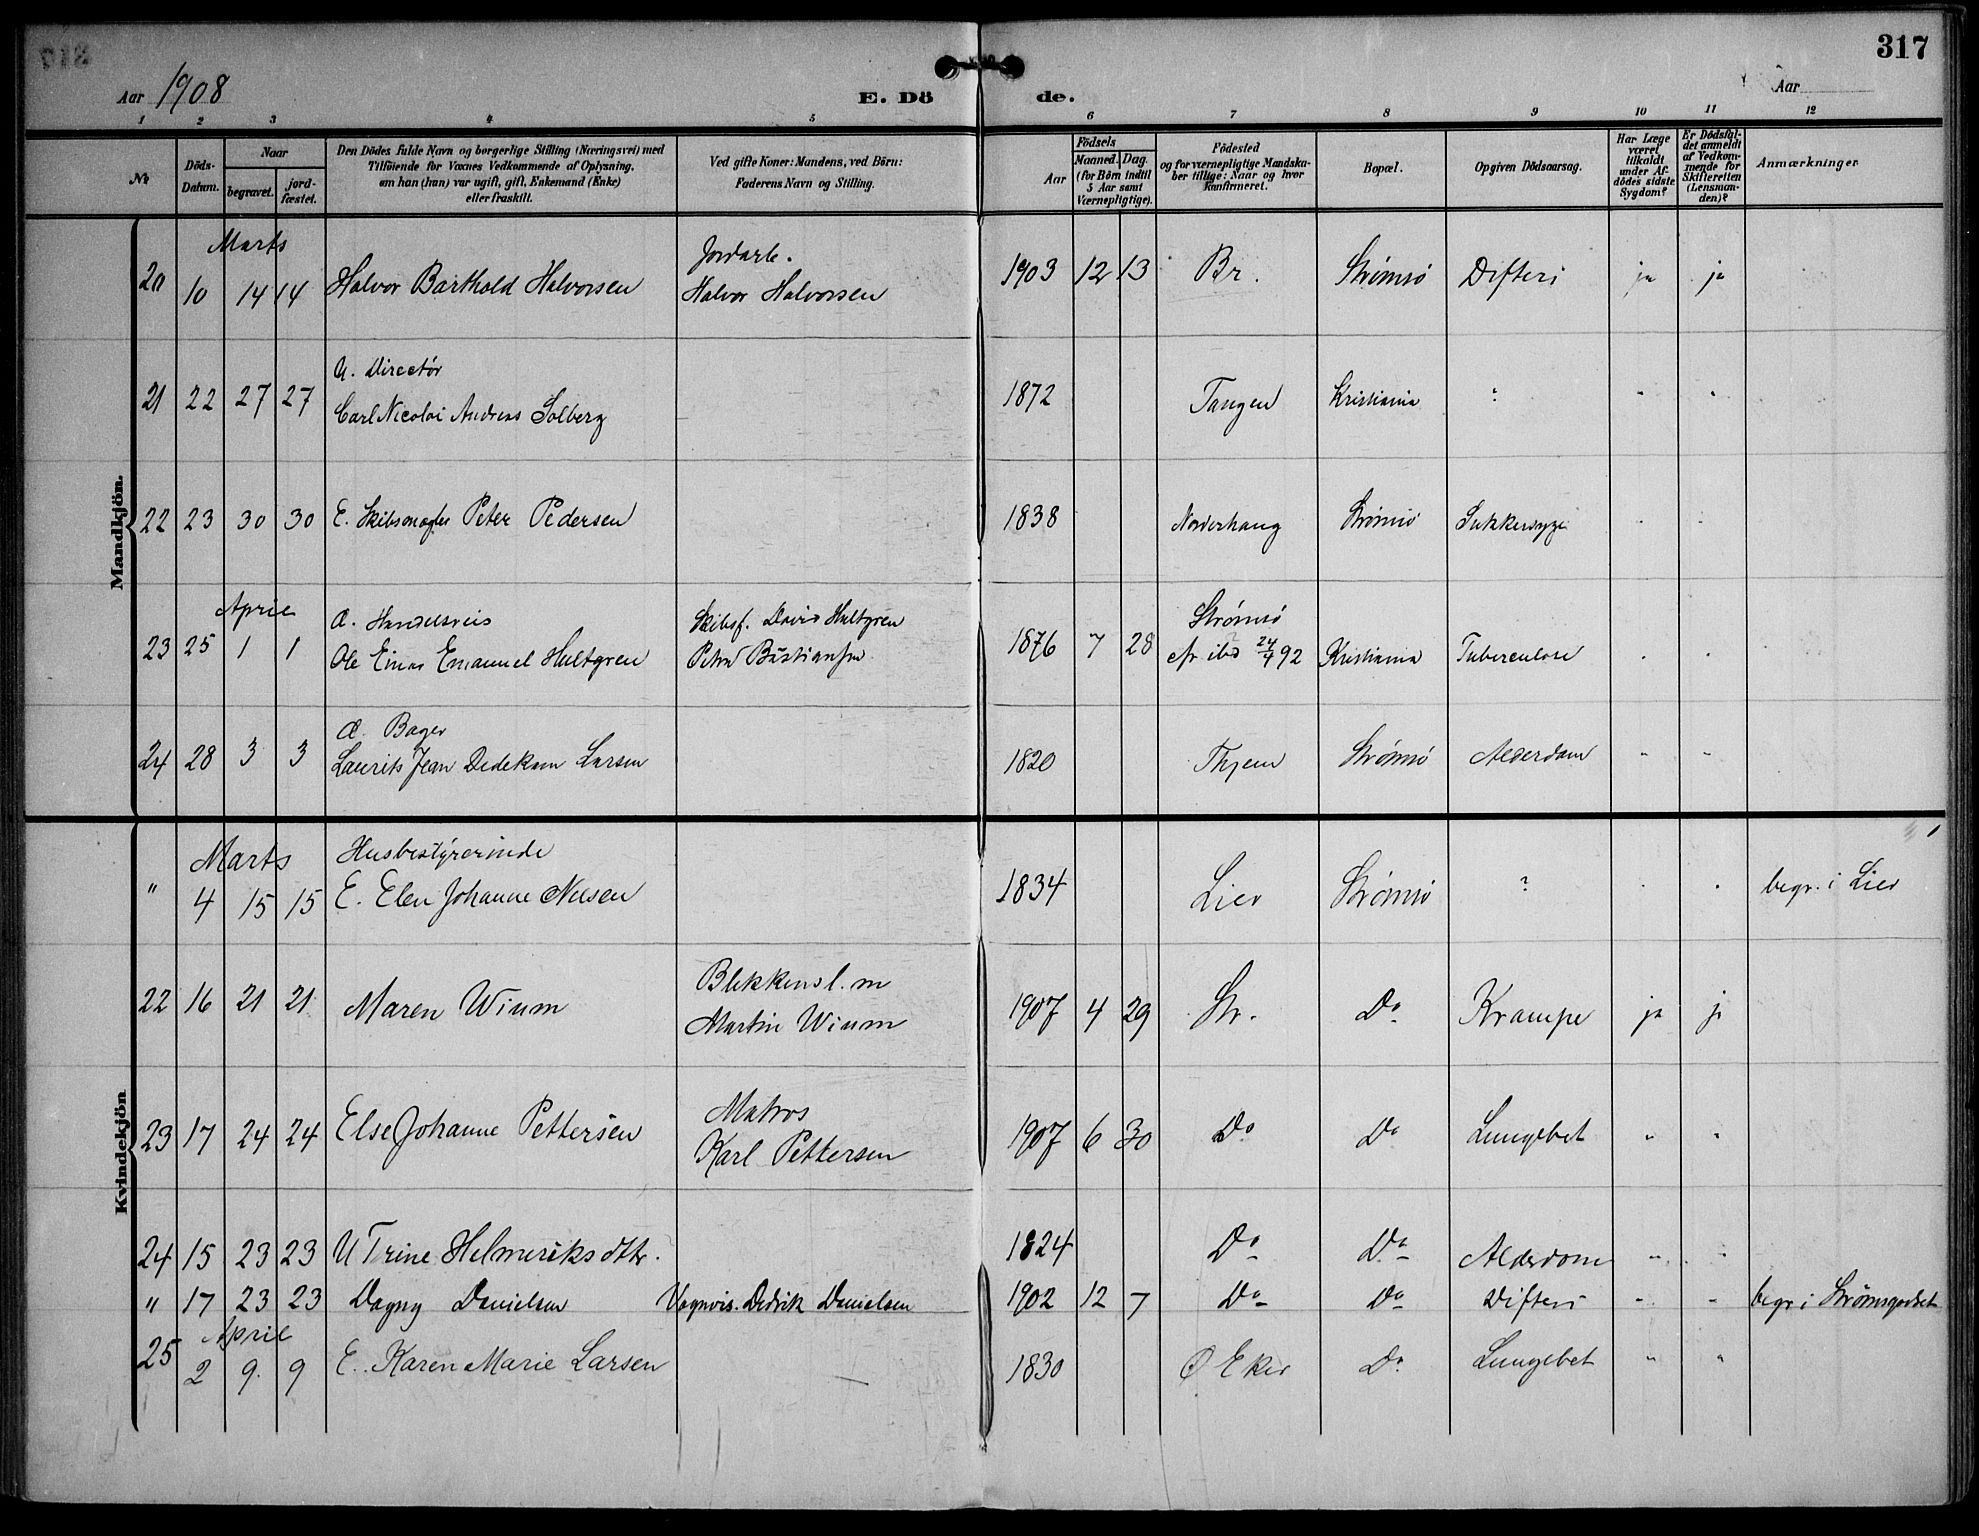 317
Aar 1908
E. Döde.
Aar
1 2 3 4 5 6 7 8 9 10 11 12
No
Döds-Datum.
Naar
begravet.
jordfæstet.
Den Dödes fulde Navn og borgerlige Stilling (Næringsvei) med
Tilföiende for Voxnes Vedkommende af Oplysning,
om han (hun) var ugift, gift, Enkemand (Enke)
eller fraskilt.
Ved gifte Koner: Mandens, ved Börn:
Faderens Navn og Stilling.
Födsels
Aar
Maaned. Dag.
(for Börn indtil
5 Aar samt
Værnepligtige).
Födested
og for værnepligtige Mandskaber tillige: Naar og hvor
Konfirmeret.
Bopæl.
Opgiven Dödsaarsag.
Har Læge
været
tilkaldt
under Afdödes sidste
Sygdom?
Er Dödsfaldet anmeldt
af Vedkommende for
Skifteretten
(Lensmanden)?
Anmærkninger
Mandkjön.
Marts
20 10 14 14 Halvor Barthold Halvorsen Jordarb. Halvor Halvorsen 1903 12 13 Br. Strömsö Difteri ja ja
21 22 27 27 U. Directör Carl Nicolai Andreas Solberg 1872 Tangen Kristiania ? " "
22 23 30 30 E. Peter Pedersen 1838 Norderhaug Strömsö Sukkersyge " "
April
23 25 1 1 Æ. Handelsreis Ole Einar Emanuel Hultgren Skibsf. David Hultgren Petra Bastiansen 1876 7 28 Strömsö cfr ibd 24/4 92 Kristiania Tuberculose " "
24 28 3 3 Æ. Bager Laurits Jean Dedekam Larsen 1820 Strömsö Alderdom " "
Kvindekjön
Marts
" 4 15 15 Husbestyrerinde E. Elen Johanne Nilsen 1834 Lier Strömsö ? " " begr. i Lier
22 16 21 21 Maren Wium Blikkensl. m Martin Wium 1907 4 29 Str. Do Krampe ja ja
23 17 24 24 Else Johanne Pettersen Matros Karl Pettersen 1907 6 30 Do Do Lungebet " "
24 15 23 23 U Trine Helmeriksdttr. 1824 Do Do Alderdom " "
" 17 23 23 Dagny Danielsen Vognvis. Dedrik Danielsen 1902 12 7 Do Do Difteri " " begr i Strömsgodset
April
25 2 9 9 E. Karen Marie Larsen 1830 Ø Eker Do Lungebet " "